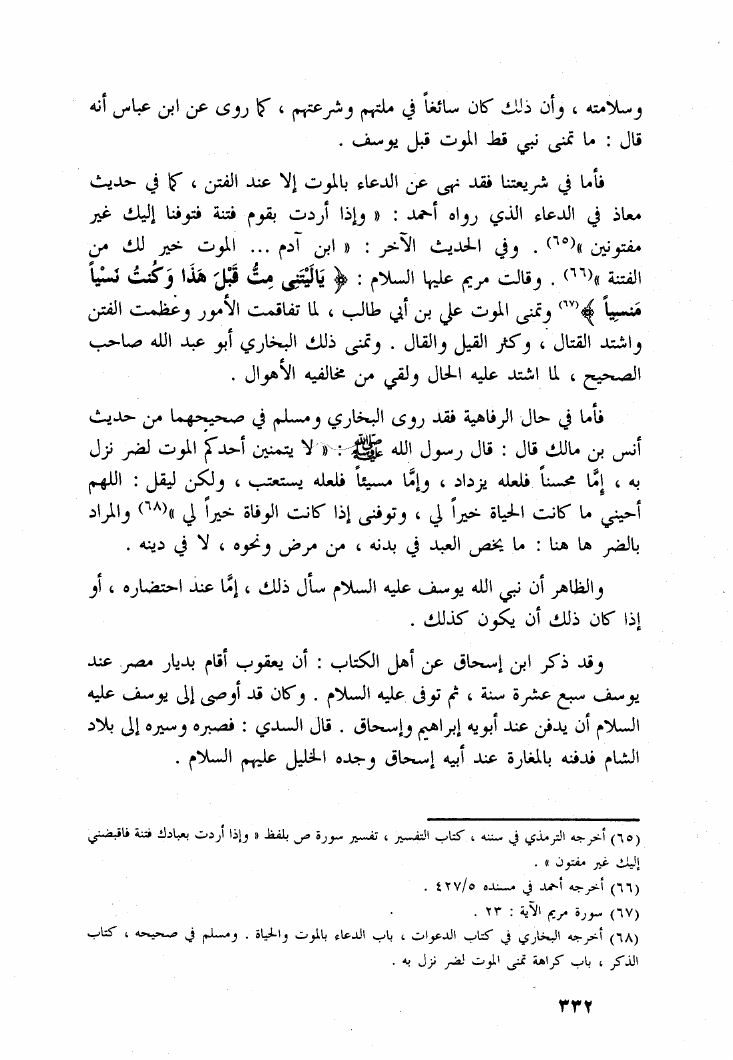 وسلامته ، وأن ذلك كان سائغاً في ملتهم وشرعتهم ، كما روى عن ابن عباس أنه
قال : ما تمنى نبي قط الموت قبل يوسف .
فأما في شريعتنا فقد نهى عن الدعاء بالموت إلا عند الفتن ، كما في حديث
معاذ في الدعاء الذي رواه أحمد : « وإذا أردت بقوم فتنة فتوفنا إليك غير
مفتونين »(٦٥) . وفي الحديث الآخر : « ابن آدم ... الموت خير لك من
الفتنة »(٦٦) . وقالت مريم عليها السلام : ﴿ يَالَيْتَنِى مِتُّ قَبْلَ هَذَا وَكُنتُ نَسْياً
مَنسِياً ﴾(٦٧) وتمنى الموت علي بن أبي طالب ، لما تفاقمت الأمور وعظمت الفتن
واشتد القتال ، وكثر القيل والقال . وتمنى ذلك البخاري أبو عبد الله صاحب
الصحيح ، لما اشتد عليه الحال ولقي من مخالفيه الأهوال .
فأما في حال الرفاهية فقد روى البخاري ومسلم في صحيحهما من حديث
أنس بن مالك قال : قال رسول الله ﷺ : « لا يتمنين أحدكم الموت لضر نزل
به ، إمَّا محسناً فلعله يزداد ، وإمَّا مسيئاً فلعله يستعتب ، ولكن ليقل : اللهم
أحيني ما كانت الحياة خيراً لي ، وتوفنى إذا كانت الوفاة خيراً لي »(٦٨) والمراد
بالضر ها هنا : ما يخص العبد في بدنه ، من مرض ونحوه ، لا في دينه .
والظاهر أن نبي الله يوسف عليه السلام سأل ذلك ، إمَّا عند احتضاره ، أو
إذا كان ذلك أن يكون كذلك .
وقد ذكر ابن إسحاق عن أهل الكتاب : أن يعقوب أقام بديار مصر عند
يوسف سبع عشرة سنة ، ثم توفى عليه السلام . وكان قد أوصى إلى يوسف عليه
السلام أن يدفن عند أبويه إبراهيم وإسحاق . قال السدي : فصبره وسيره إلى بلاد
الشام فدفنه بالمغارة عند أبيه إسحاق وجده الخليل عليهم السلام .
(٦٥) أخرجه الترمذي في سننه ، كتاب التفسير ، تفسير سورة ص بلفظ « وإذا أردت بعبادك فتنة فاقبضني
إليك غير مفتون » .
(٦٦) أخرجه أحمد في مسنده ٤٢٧/٥ .
(٦٧) سورة مريم الآية : ٢٣ .
(٦٨) أخرجه البخاري في كتاب الدعوات ، باب الدعاء بالموت والحياة . ومسلم في صحيحه ، كتاب
الذكر ، باب كراهة تمنى الموت لضر نزل به .
٣٣٢